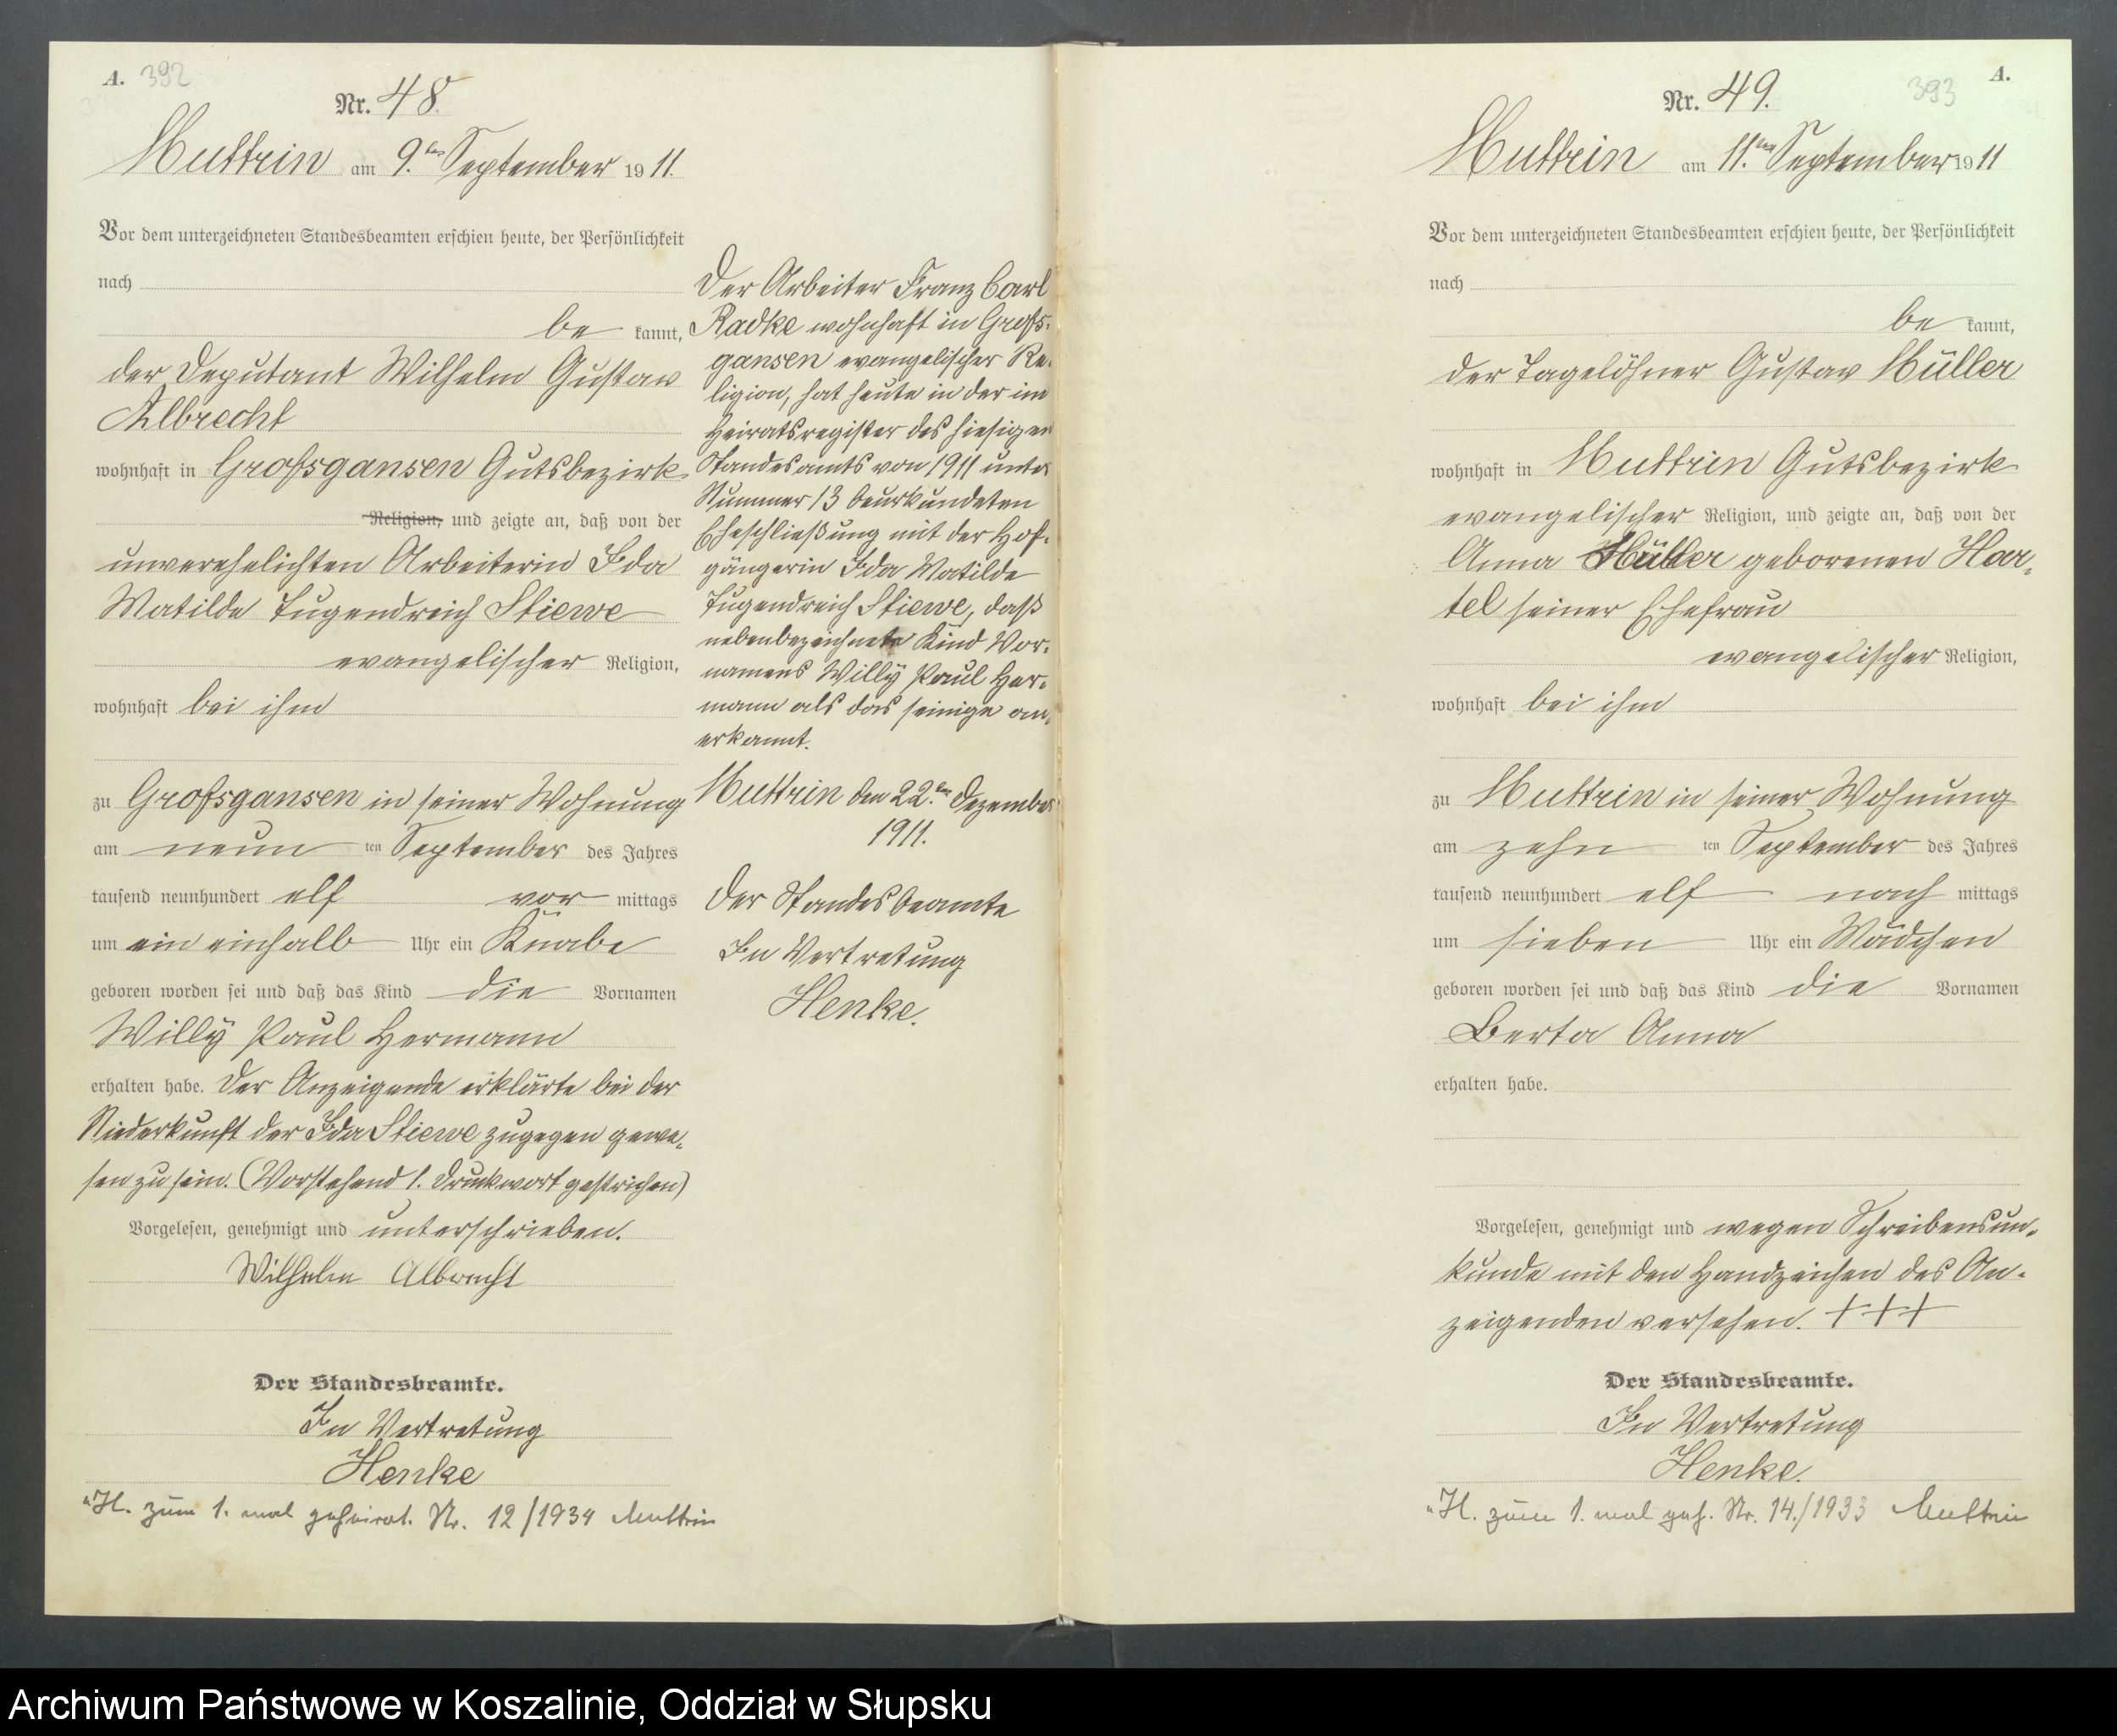 A. 392
Nr. 48.
Muttrin am 9.ten September 1911.
Vor dem unterzeichneten Standesbeamten erschien heute, der Persönlichkeit
nach
be kannt,
der Deputant Wilhelm Gustav
Albrecht
wohnhaft in Großgansen Gutsbezirk
Religion, und zeigte an, daß von der
unverehelichten Arbeiterin Ida
Matilde Tugendreich Stiewe
evangelischer Religion,
wohnhaft bei ihm
zu Großgansen in seiner Wohnung
am neun ten September des Jahres
tausend neunhundert elf vor mittags
um ein einhalb Uhr ein Knabe
geboren worden sei und daß das Kind die Vornamen
Willy Paul Hermann
erhalten habe. Der Anzeigende erklärte bei der
Niederkunft der Ida Stiewe zugegen gewe-
sen zu sein. (Vorstehend 1. Druckwort gestrichen)
Vorgelesen, genehmigt und unterschrieben.
Wilhelm Albrecht
Der Standesbeamte.
In Vertretung
Henke
"H. zum 1. mal geheirat. Nr. 12/1934 Muttrin
Der Arbeiter Franz Carl
Radke wohnhaft in Groß-
gansen evangelischer Re-
ligion, hat heute in der im
Heiratsregister des hiesigen
Standesamts von 1911 unter
Nummer 13 beurkundeten
Eheschließung mit der Hof-
gängerin Ida Matilde
Tugendreich Stiewe, daß
nebenbezeichnete Kind Vor-
namens Willy Paul Her-
mann als das seinige an-
erkannt.
Muttrin den 22.ten Dezember
1911.
Der Standesbeamte
In Vertretung
Henke.
393 A.
Nr. 49.
Muttrin am 11.ten September 1911
Vor dem unterzeichneten Standesbeamten erschien heute, der Persönlichkeit
nach
be kannt,
der Tagelöhner Gustav Müller
wohnhaft in Muttrin Gutsbezirk
evangelischer Religion, und zeigte an, daß von der
Anna Müller geborenen Har-
tel seiner Ehefrau
evangelischer Religion,
wohnhaft bei ihm
zu Muttrin in seiner Wohnung
am zehn ten September des Jahres
tausend neunhundert elf nach mittags
um sieben Uhr ein Mädchen
geboren worden sei und daß das Kind die Vornamen
Berta Anna
erhalten habe.
Vorgelesen, genehmigt und wegen Schreibensun-
kunde mit den Handzeichen des An-
zeigenden versehen. +++
Der Standesbeamte.
In Vertretung
Henke.
"H. zum 1. mal geh. Nr. 14./1933 Muttrin
Archiwum Państwowe w Koszalinie, Oddział w Słupsku